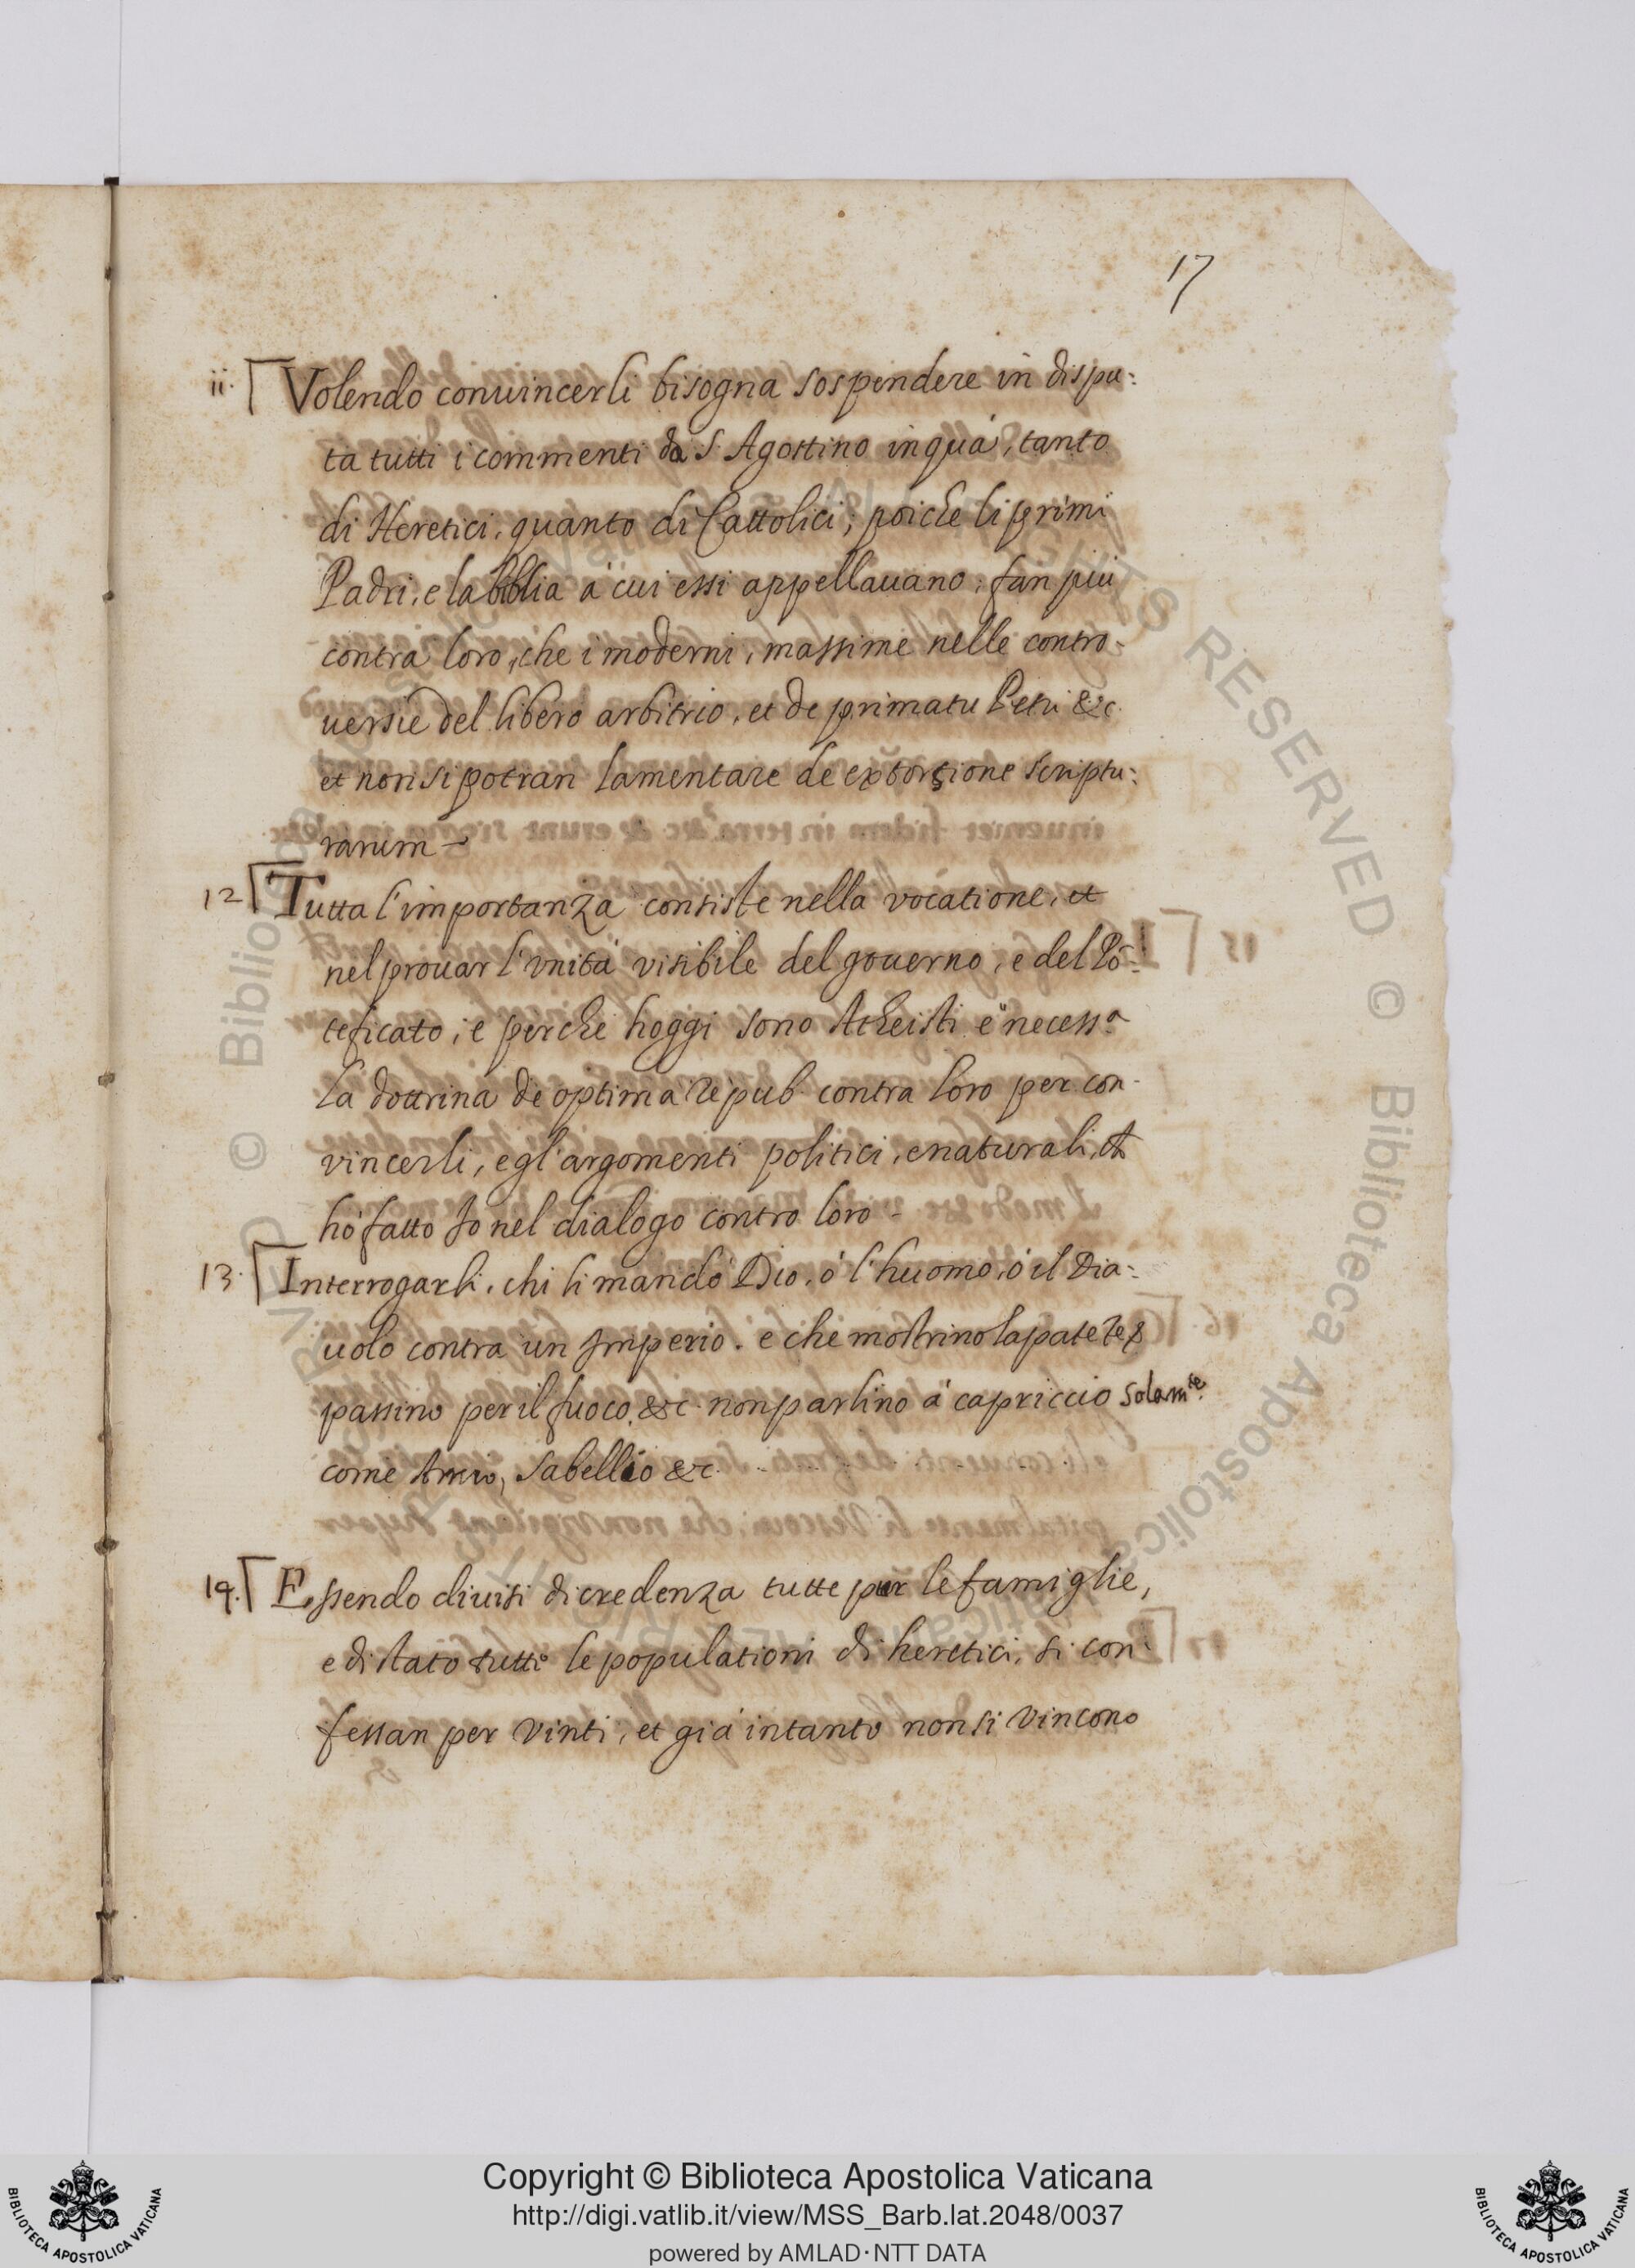 17
ii. Volendo conuincerli bisogna sospendere in dispu:
ta tutti i commenti da S. Agostino in quà, tanto
di Heretici, quanto di Cattolici; poiche li primi
Padri, e la biblia à cui essi appellauano, fan più
contra loro, che i moderni, massime nelle contro-
uersie del libero arbitrio, et de primatu Petri &c.
et non si potran lamentare de extorsione scriptu:
rarum
12 Tutta l'importanza consiste nella vocatione, et
nel prouar l'vnità visibile del gouerno, e del Põ-
teficato; e perche hoggi sono Atheisti è necess.a
la dottrina de optima repub. contra loro per con-
vincerli, e gl'argomenti politici, e naturali,
hò fatto Io nel dialogo contro loro -
13. Interrogarli, chi li mandò Dio, ò l'huomo, ò il Dia:
uolo contra un Imperio. e che mostrino la patete,
passino per il fuoco, &c. non parlino à capriccio solam.te
come Arrio, Sabellio &c.
14. Essendo diuisi di credenza tutte pur le famiglie,
e di stato tutte le populationi di heretici, si con
fessan per vinti, et già intanto non si vincono
Copyright © Biblioteca Apostolica Vaticana
http://digi.vatlib.it/view/MSS_Barb.lat.2048/0037
powered by AMLAD·NTT DATA
BIBLIOTECA APOSTOLICA VATICANA
BIBLIOTECA APOSTOLICA VATICANA